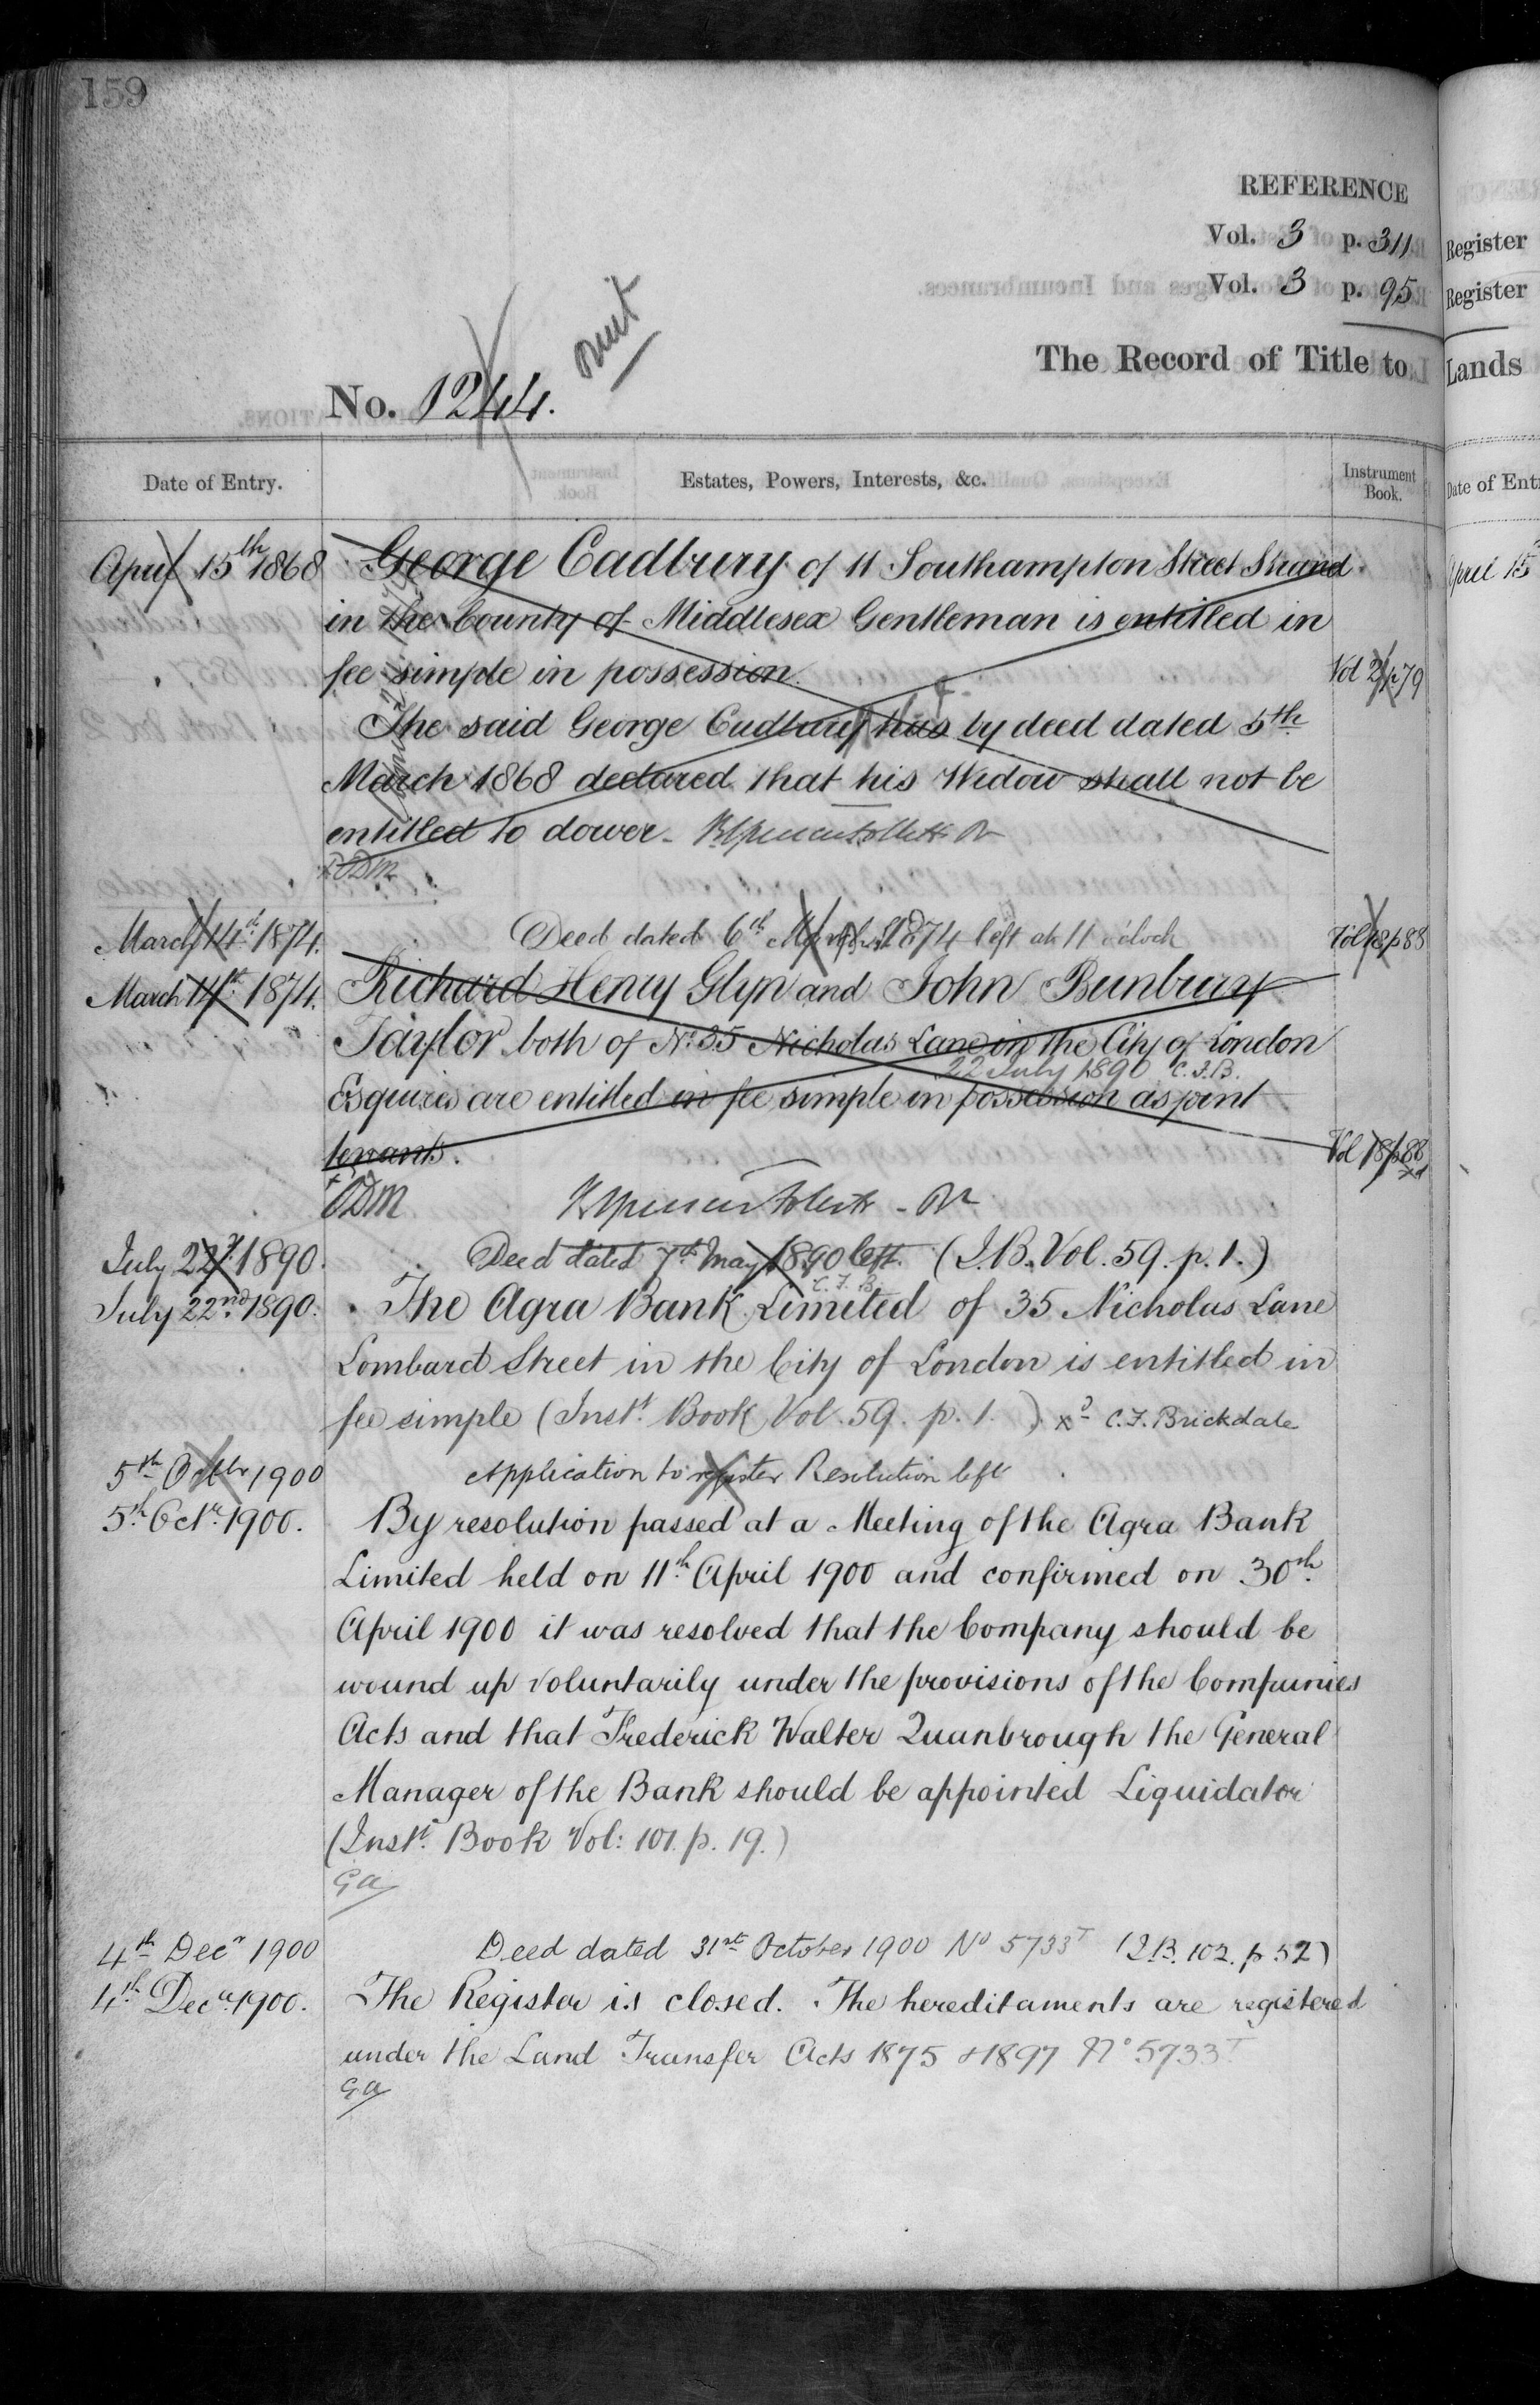 159
REFERENCE
Vol. 3 p. 311 Register
Vol. 3 p. 95 Register
omit
The Record of Title to Lands
No. 1244.
Date of Entry. Estates, Powers, Interests, &c. Instrument Book. Date of Ent
April 15th 1868 George Cadbury of 11 Southampton Street Strand April 15
in the County of Middlesex Gentleman is entitled in
fee simple in possession. Vol 2 p 79
The said George Cadbury has by deed dated 5th
March 1868 declared that his Widow shall not be
entitled to dower.
March 14th 1874. Deed dated 6th March 1874 left at 11 o'clock Vol 18 p 88
March 14th 1874. Richard Henry Glyn and John Bunbury
Taylor both of No. 35 Nicholas Lane in the City of London
22 July 1890 C.F.B.
Esquires are entitled in fee simple in possession as joint
tenants. Vol 18 p 88
July 22d 1890. Deed dated 7th May 1890 left. (I.B. Vol. 59. p. 1.)
C.F.B.
July 22nd 1890. The Agra Bank Limited of 35 Nicholas Lane
Lombard Street in the City of London is entitled in
fee simple (Instt. Book Vol. 59. p. 1. ) xd C.F. Brickdale
5th Octbr 1900 Application to register Resolution left
5th Octr. 1900. By resolution passed at a Meeting of the Agra Bank
Limited held on 11th April 1900 and confirmed on 30th
April 1900 it was resolved that the Company should be
wound up voluntarily under the provisions of the Companies
Acts and that Frederick Walter Quanbrough the General
Manager of the Bank should be appointed Liquidator
(Instt. Book Vol: 101. p. 19.)
GA
4th Decr 1900 Deed dated 31st October 1900 No 5733T (I.B. 102. p 52)
4th Decr. 1900. The Register is closed. The hereditaments are registered
under the Land Transfer Acts 1875 & 1897 No 5733T
GA